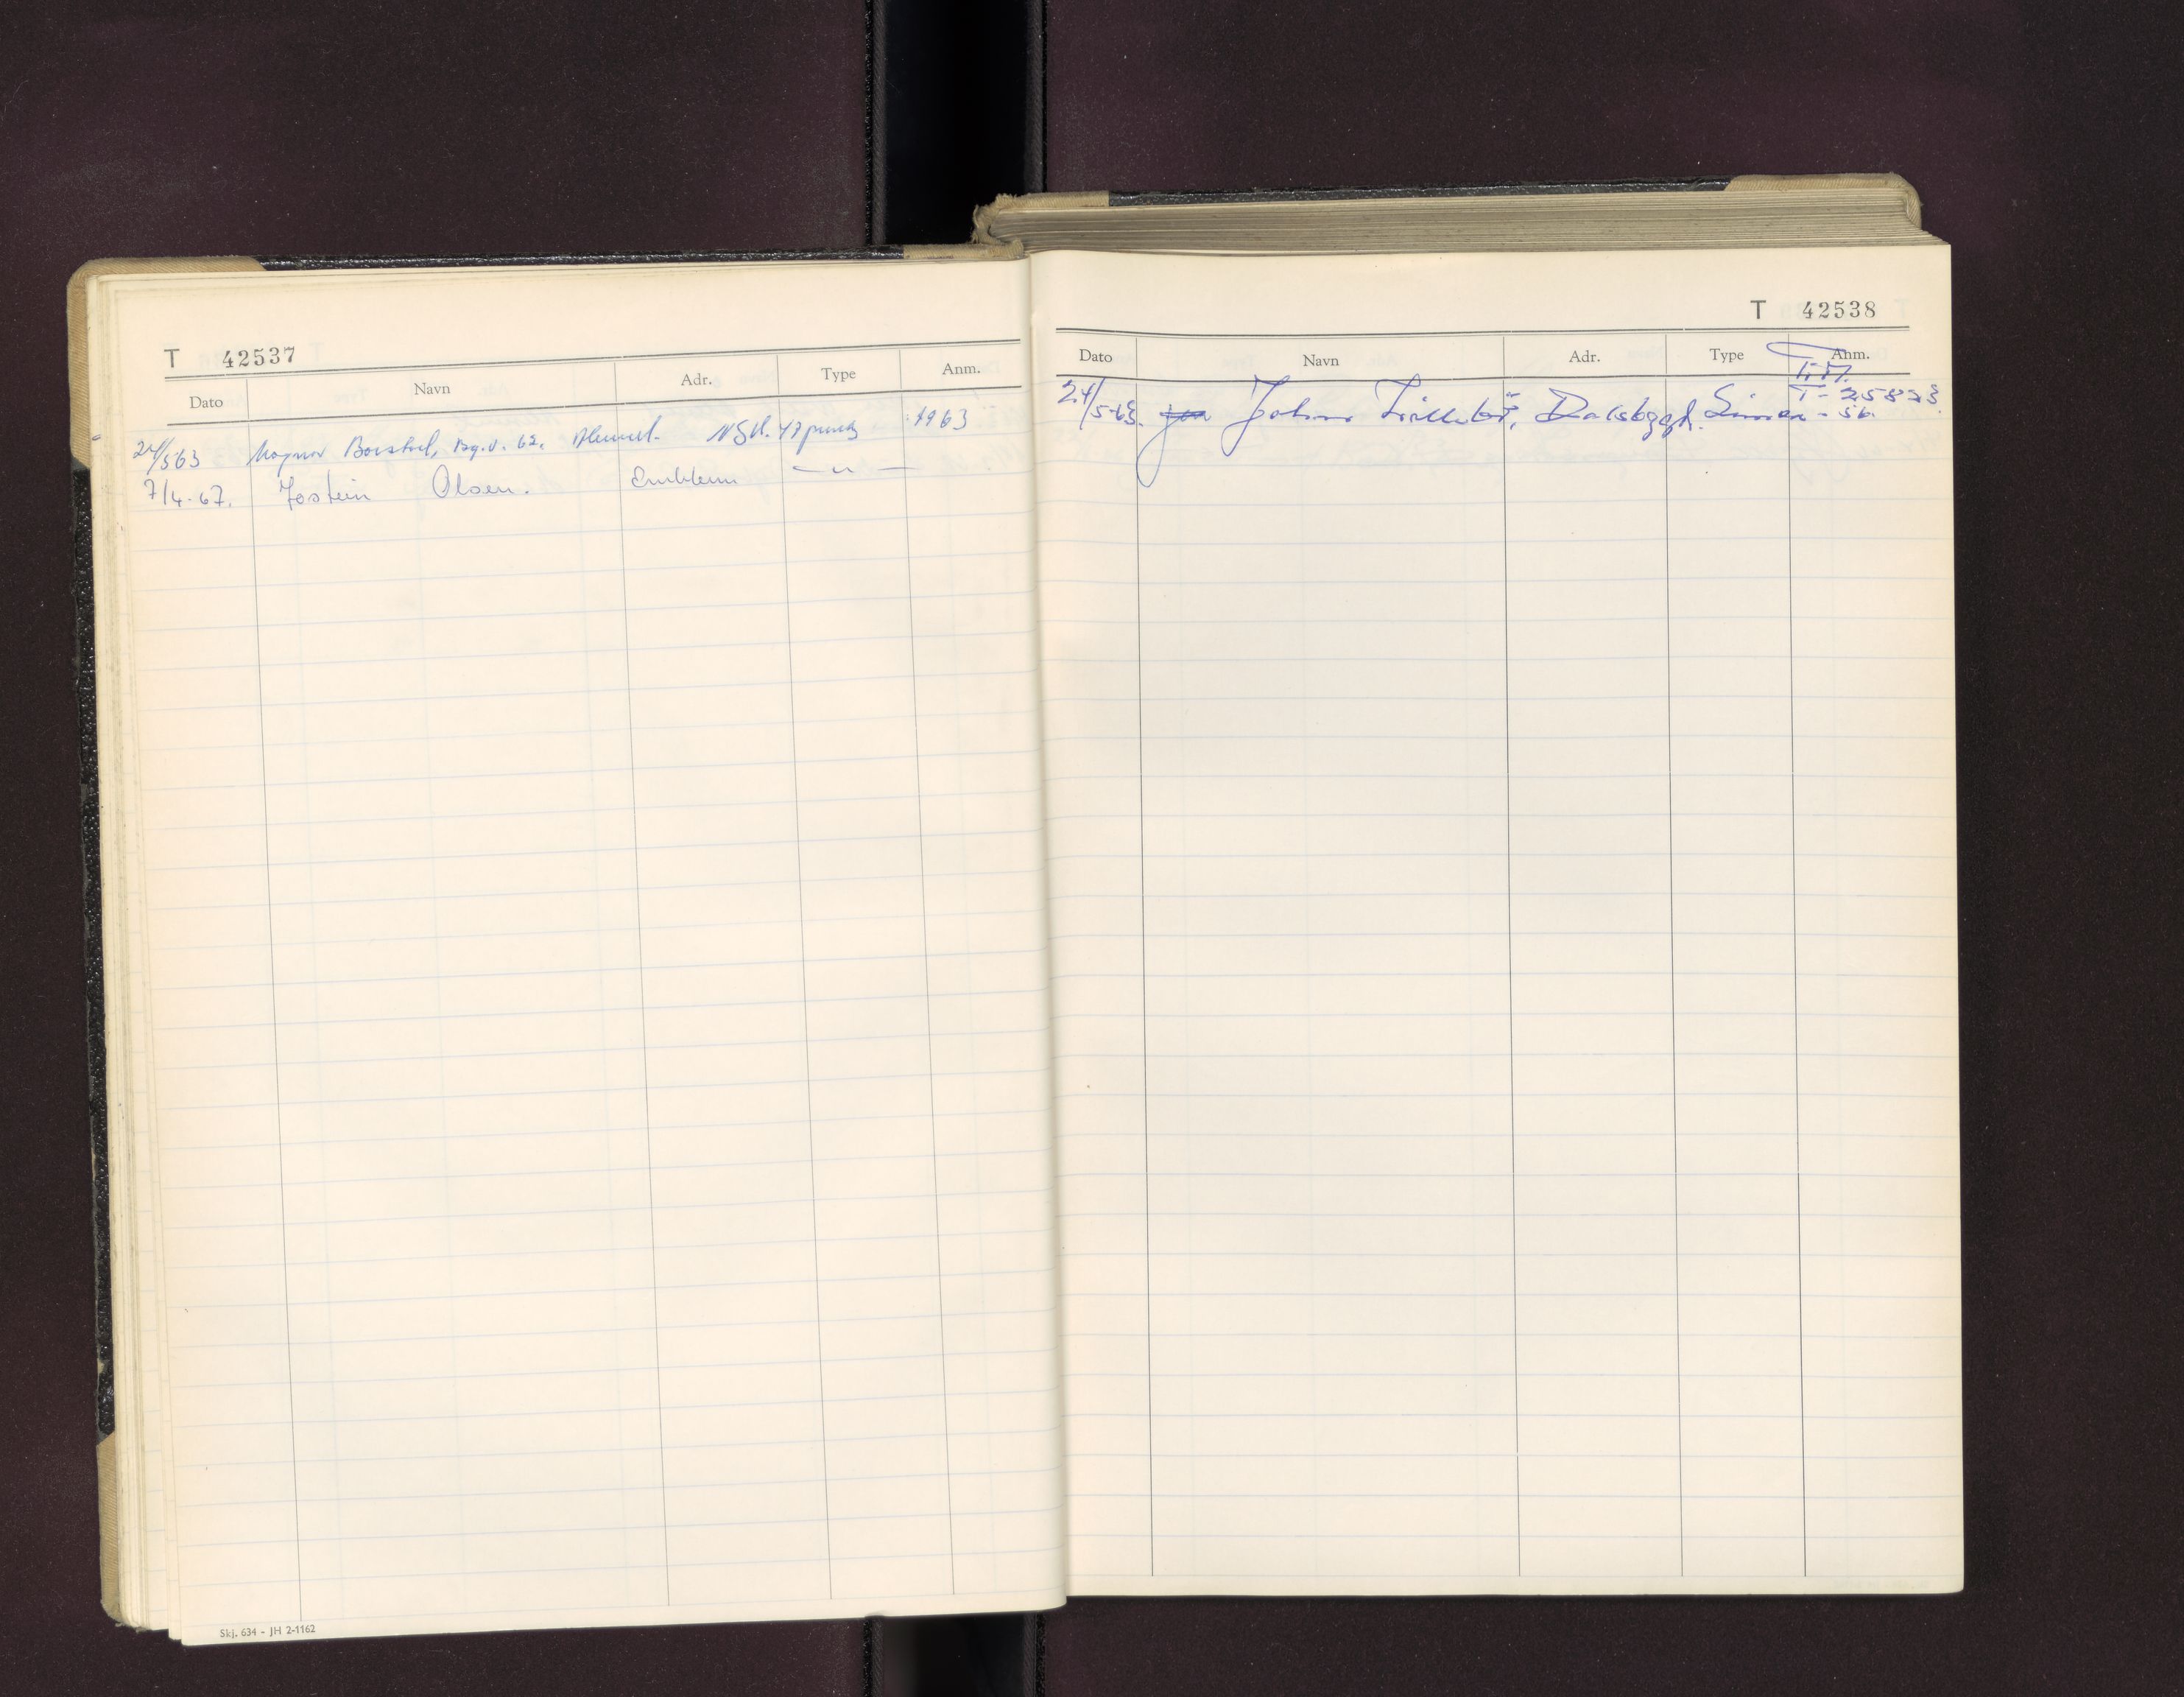 T 42537
Dato Navn Adr. Type Anm.
24/5 63 Magnar Borstad, Bg.v. 62. Ålesund. NSU. 17 pmwg 1963
7/4-67. Jostein Olsen. Emblem — " —
Skj. 634 - JH 2-1162
T 42538
Dato Navn Adr. Type Anm.
T.M.
T-25823
24/5-63. Johan Lillebø, Dalsbygd. Simca - 56.